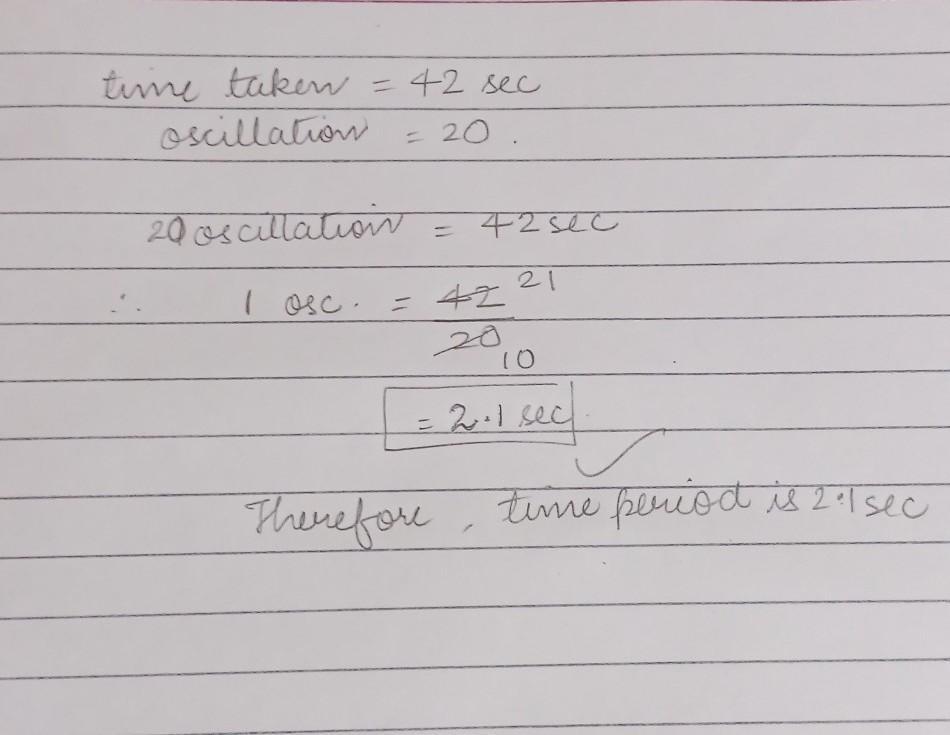 time taken = 42 sec
oscillation = 20.
20 oscillation = 42 sec
∴ 1 osc. = 42 21
20 10
= 2.1 sec
Therefore, time period is 2.1 sec